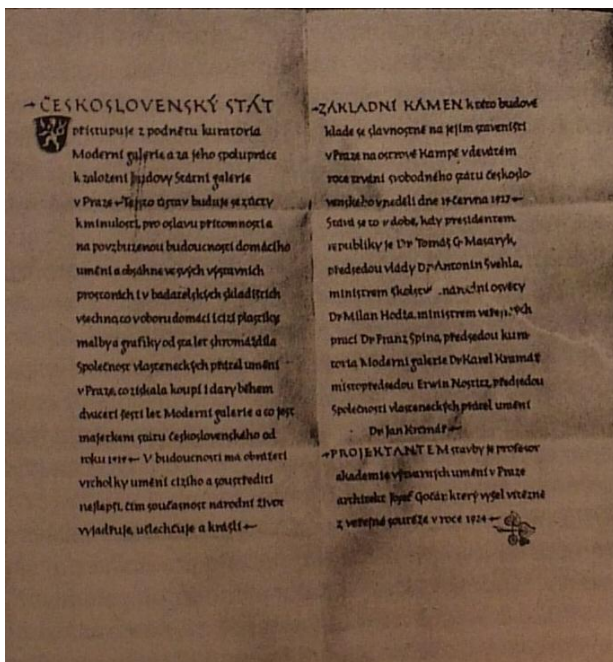 ČESKOSLOVENSKÝ STÁT
přistupuje z podnětu kuratoria
Moderní galerie a za jeho spolupráce
k založení budovy Státní galerie
v Praze Tento ústav buduje se z úcty
k minulosti, pro oslavu přítomnosti a
na povzbuzenou budoucnosti domácího
umění a obsáhne ve svých výstavních
prostorách i v badatelských skladištích
všechno, co v oboru domácí i cizí plastiky
malby a grafiky od sta let shromáždila
Společnost vlasteneckých přátel umění
v Praze, co získala koupí i dary během
dvaceti šesti let Moderní galerie a co jest
majetkem státu Československého od
roku 1919 V budoucnosti má obrážeti
vrcholky umění cizího a soustřediti
nejlepší, čím současnost národní život
vyjadřuje, ušlechťuje a krášlí
ZÁKLADNÍ KÁMEN k této budově
klade se slavnostně na jejím staveništi
v Praze na ostrově Kampě v devátém
roce trvání svobodného státu Českoslo-
venského v neděli dne 19 června 1927
Stává se to v době, kdy presidentem
republiky je Dr Tomáš G. Masaryk,
předsedou vlády Dr Antonín Švehla,
ministrem školství národní osvěty
Dr Milan Hodža, ministrem veřejných
prací Dr Franz Spina, předsedou kura-
toria Moderní galerie Dr Karel Kramář
místopředsedou Erwin Nostitz, předsedou
Společnosti vlasteneckých přátel umění
Dr Jan Krčmář
PROJEKTANTEM stavby je profesor
akademie výtvarných umění v Praze
architekt Josef Gočár, který vyšel vítězně
z veřejné soutěže v roce 1924